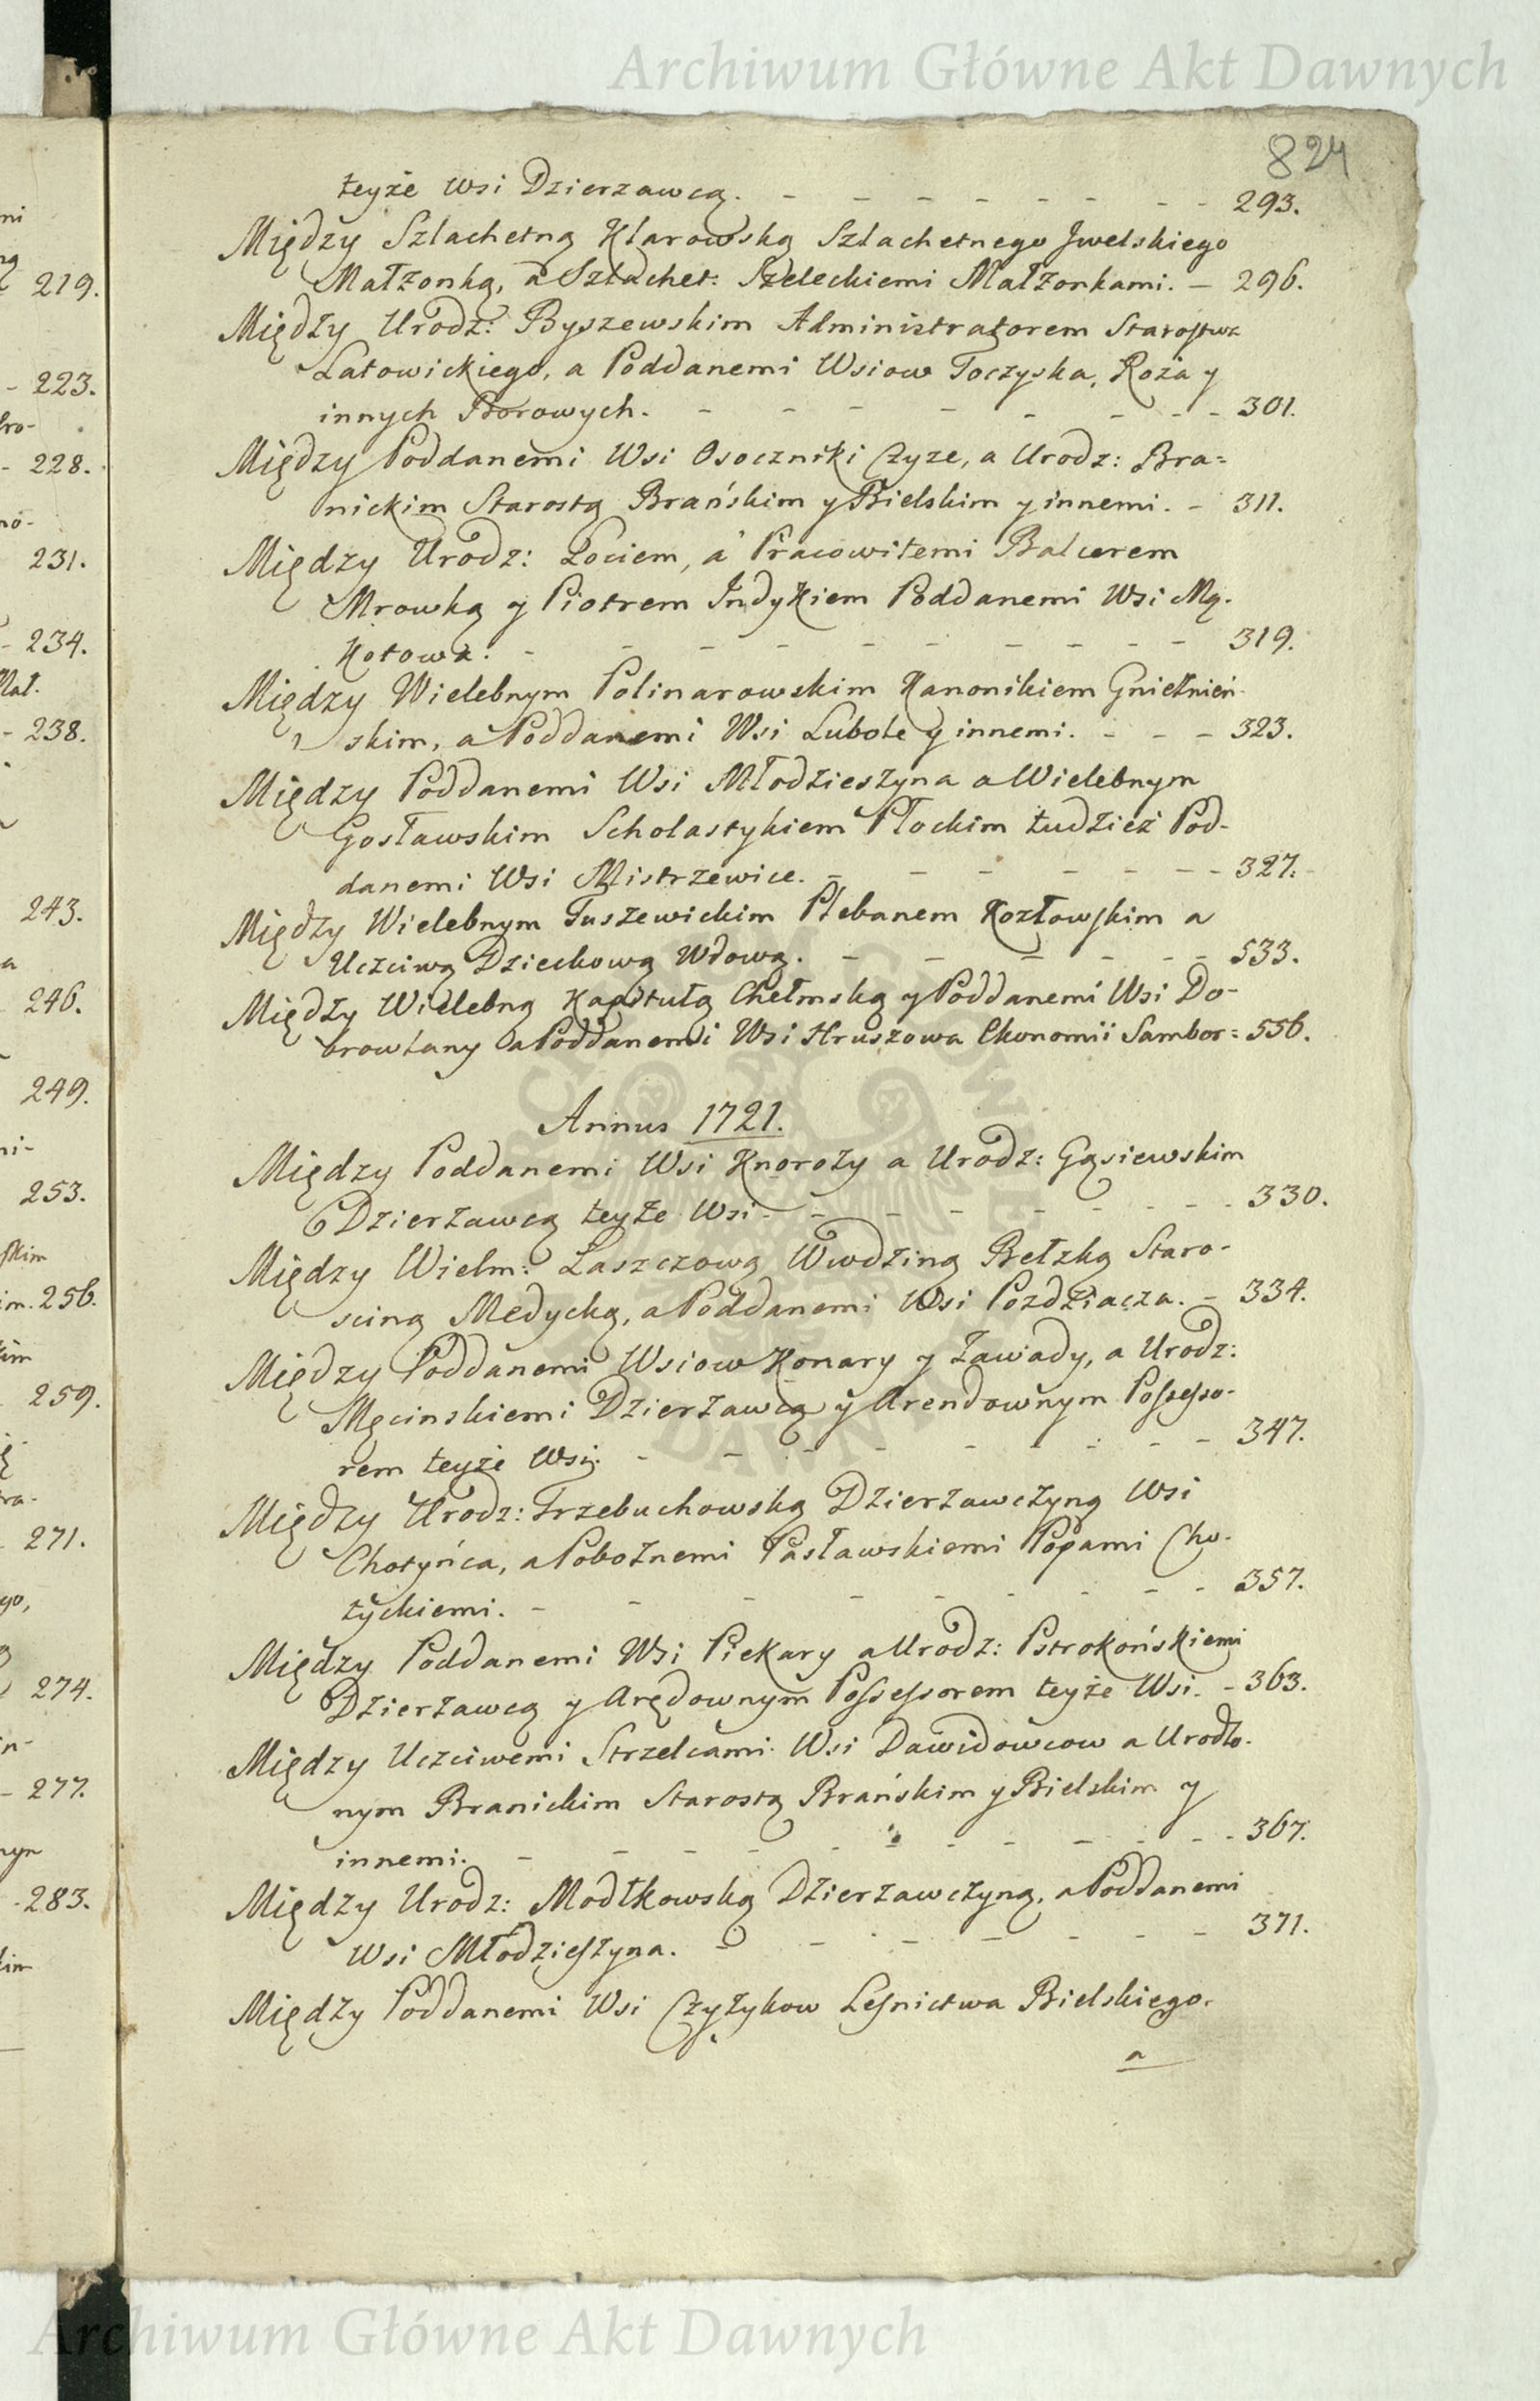 Archiwum Główne Akt Dawnych
824
teyże Wsi Dzierzawcą. - - - - - - - - 293.
Między Szlachetną Klarowską Szlachetnego Jwelskiego
Małżonką, a Szlachet: Szeleckiemi Małżonkami. - 296.
Między Urodz: Byszewskim Administratorem Starostwa
Latowickiego, a Poddanemi Wsiow Toczyska, Roża y
innych Borowych. - - - - - - - - 301.
Między Poddanemi Wsi Osoczniki Czyze, a Urodz: Bra=
nickim Starostą Brańskim y Bielskim y innemi. - 311.
Między Urodz: Łociem, a Pracowitemi Balcerem
Mrowką y Piotrem Jndykiem Poddanemi Wsi Mą-
kotowa. - - - - - - - - - 319.
Między Wielebnym Polinarowskim Kanonikiem Gnieźnień-
skim, a Poddanemi Wsi Lubole y innemi. - - - 323.
Między Poddanemi Wsi Młodzieszyna a Wielebnym
Gosławskim Scholastykiem Płockim tudzież Pod-
danemi Wsi Mistrzewice. - - - - - - - 327.
Między Wielebnym Tuszewickim Plebanem Kozłowskim a
Uczciwą Dzieckową Wdową. - - - - - - 533.
Między Wielebną Kapitułą Chełmską y Poddanemi Wsi Do-
browlany a Poddanemi Wsi Hruszowa Ekonomii Sambor: 556.
Annus 1721.
Między Poddanemi Wsi Knorozy a Urodz: Gąsiewskim
Dzierzawcą teyże Wsi. - - - - - - - - 330.
Między Wielm: Łaszczową Wwdziną Bełzką Staro-
sciną Medycką, a Poddanemi Wsi Pozdziacza. - 334.
Między Poddanemi Wsiow Konary y Zawady, a Urodz:
Męcinskiemi Dzierzawcą y Arendownym Possesso-
rem teyże Wsi. - - - - - - - - 347.
Między Urodz: Trzebuchowską Dzierzawczyną Wsi
Chotyńca, a Pobożnemi Pasławskiemi Popami Cho-
tyckiemi. - - - - - - - - 357.
Między Poddanemi Wsi Piekary a Urodz: Pstrokońskiemi
Dzierzawcą y Arędownym Possessorem teyże Wsi. - 363.
Między Uczciwemi Strzelcami Wsi Dawidowcow a Urodzo-
nym Branickim Starostą Brańskim y Bielskim y
innemi. - - - - - - - - - 367.
Między Urodz: Modłkowską Dzierzawczyną, a Poddanemi
Wsi Młodzieszyna. - - - - - - - 371.
Między Poddanemi Wsi Czyżykow Leśnictwa Bielskiego.
a
219.
223.
228.
231.
234.
238.
243.
246.
249.
253.
256.
259.
271.
274.
277.
283.
Archiwum Główne Akt Dawnych